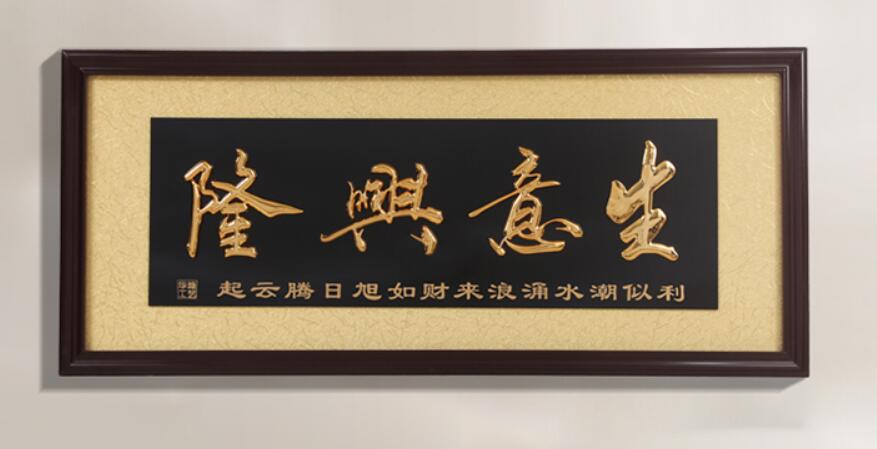 生意興隆
利似潮水涌浪来财如旭日腾云起